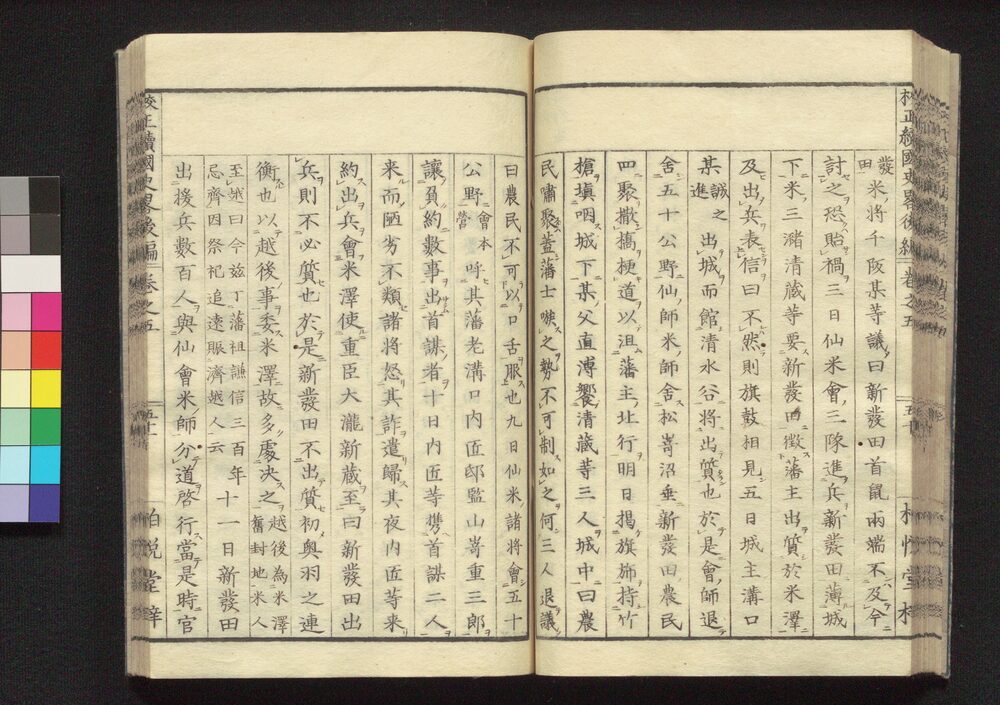 校正續國史畧後編 卷之五
五十
發田
米將千阪某等議曰新發田首鼠兩端不及今
討之恐貽禍三日仙米會三隊進兵新發田薄城
下米三瀦清藏等要新發田徵藩主出質於米澤
及出兵表信曰不然則旗鼓相見五日城主溝口
某誠之進出城而館清水谷將出質也於是會師退
舍五十公野仙師米師舍松嵜沼垂新發田農民
四聚撒槁梗道以沮藩主北行明日揭旗斾持竹
槍塡咽城下某父直溥饗清藏等三人城中曰農
民嘯聚葢藩士嗾之勢不可制如之何三人退議
曰農民不可以口舌服也九日仙米諸將會五十
公野會本營呼其藩老溝口內匠邸監山嵜重三郎
讓負約數事出首謀者十日內匠等携首謀二人
来而陋劣不類諸將怒其詐遣歸其夜內匠等来
約出兵會米澤使重臣大瀧新藏至曰新發田出
兵則不必質也於是新發田不出質初奧羽之連
衡也以越後事委米澤故多處決之越後為米澤舊封地米人
至越曰今兹丁藩祖謙信三百年
忌齊因祭祀追遠賑濟越人云
十一日新發田
出援兵數百人與仙會米師分道啓行當是時官
校正續國史畧後編 卷之五
五十一